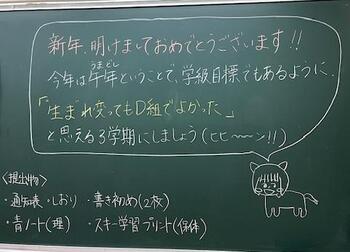 新年、明けましておめでとうございます!!
うまどし
今年は午年ということで、学級目標でもあるように、
「生まれ変ってもD組でよかった」
と思える3学期にしましょう(ヒヒ〜〜ン!!)
<提出物>
・通知表・しおり ・書き初め(2枚)
・青ノート(理) ・スキー学習プリント(保体)